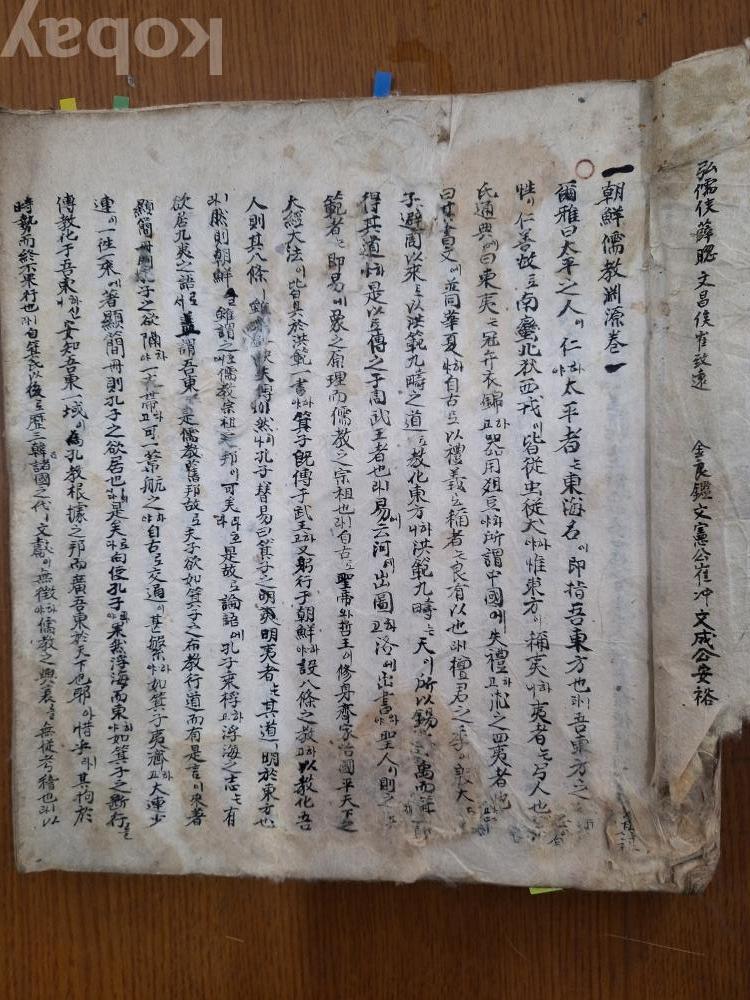 kobay
弘儒侯薛聰 文昌侯崔致遠 金良鑑 文憲公崔冲 文成公安裕
朝鮮儒教淵源卷一
爾雅曰太平之人이仁하야太平者는東海名이即指吾東方也라吾東方之
性이仁善故로南蠻北狄西戎이皆從虫從犬하야惟東方이稱夷하니夷者는
氏通典에曰東夷는冠弁衣錦하고器用俎豆하야所謂中國에失禮하고求之四夷者也
文에並同華夏하야自古로以禮義로稱者는良有以也라檀君之季
子避周以來로以洪範九疇之道로教化東方하니洪範九疇는天이所以錫禹而
得其道하야是以로傳之于周武王者也라易에云河에出圖하고洛에出書하야聖人이則之
範者는即易에象之原理而儒教之宗祖也라自古로聖帝와哲王이修身齊家治國平天下之
大經大法이皆具於洪範一書하야箕子既傳于武王하고又躬行于朝鮮하야設八條之教하고以教化吾
人則其八條이雖 失傳이然이나孔子贊易曰箕子之明夷明夷者는其道이明於東方也
라然則朝鮮을雖謂之儒教宗祖之邦이可矣라是故로論語에孔子乘桴하고浮海之志는有
欲居九夷之語하니蓋謂吾東이是儒教舊邦故로夫子欲如箕子之布教行道而有是言이來者
顯簡冊 孔子之欲 하야一衣帶고可一葦航之하야自古로交通이甚繁하야如箕子夷齊고大連少
連이一往一來에著顯簡冊則孔子之欲居也라是矣라向使孔子果然浮海而東하야如箕子之斷行을
傳教化于吾東하신安知吾東一域이爲孔教根據之邦而廣吾東於天下也耶아惜乎라其拘於
時勢而終不果行也라自箕氏以後로歷三韓諸國之代이文獻이無徵하야儒教之興衰를無從考稽也라以